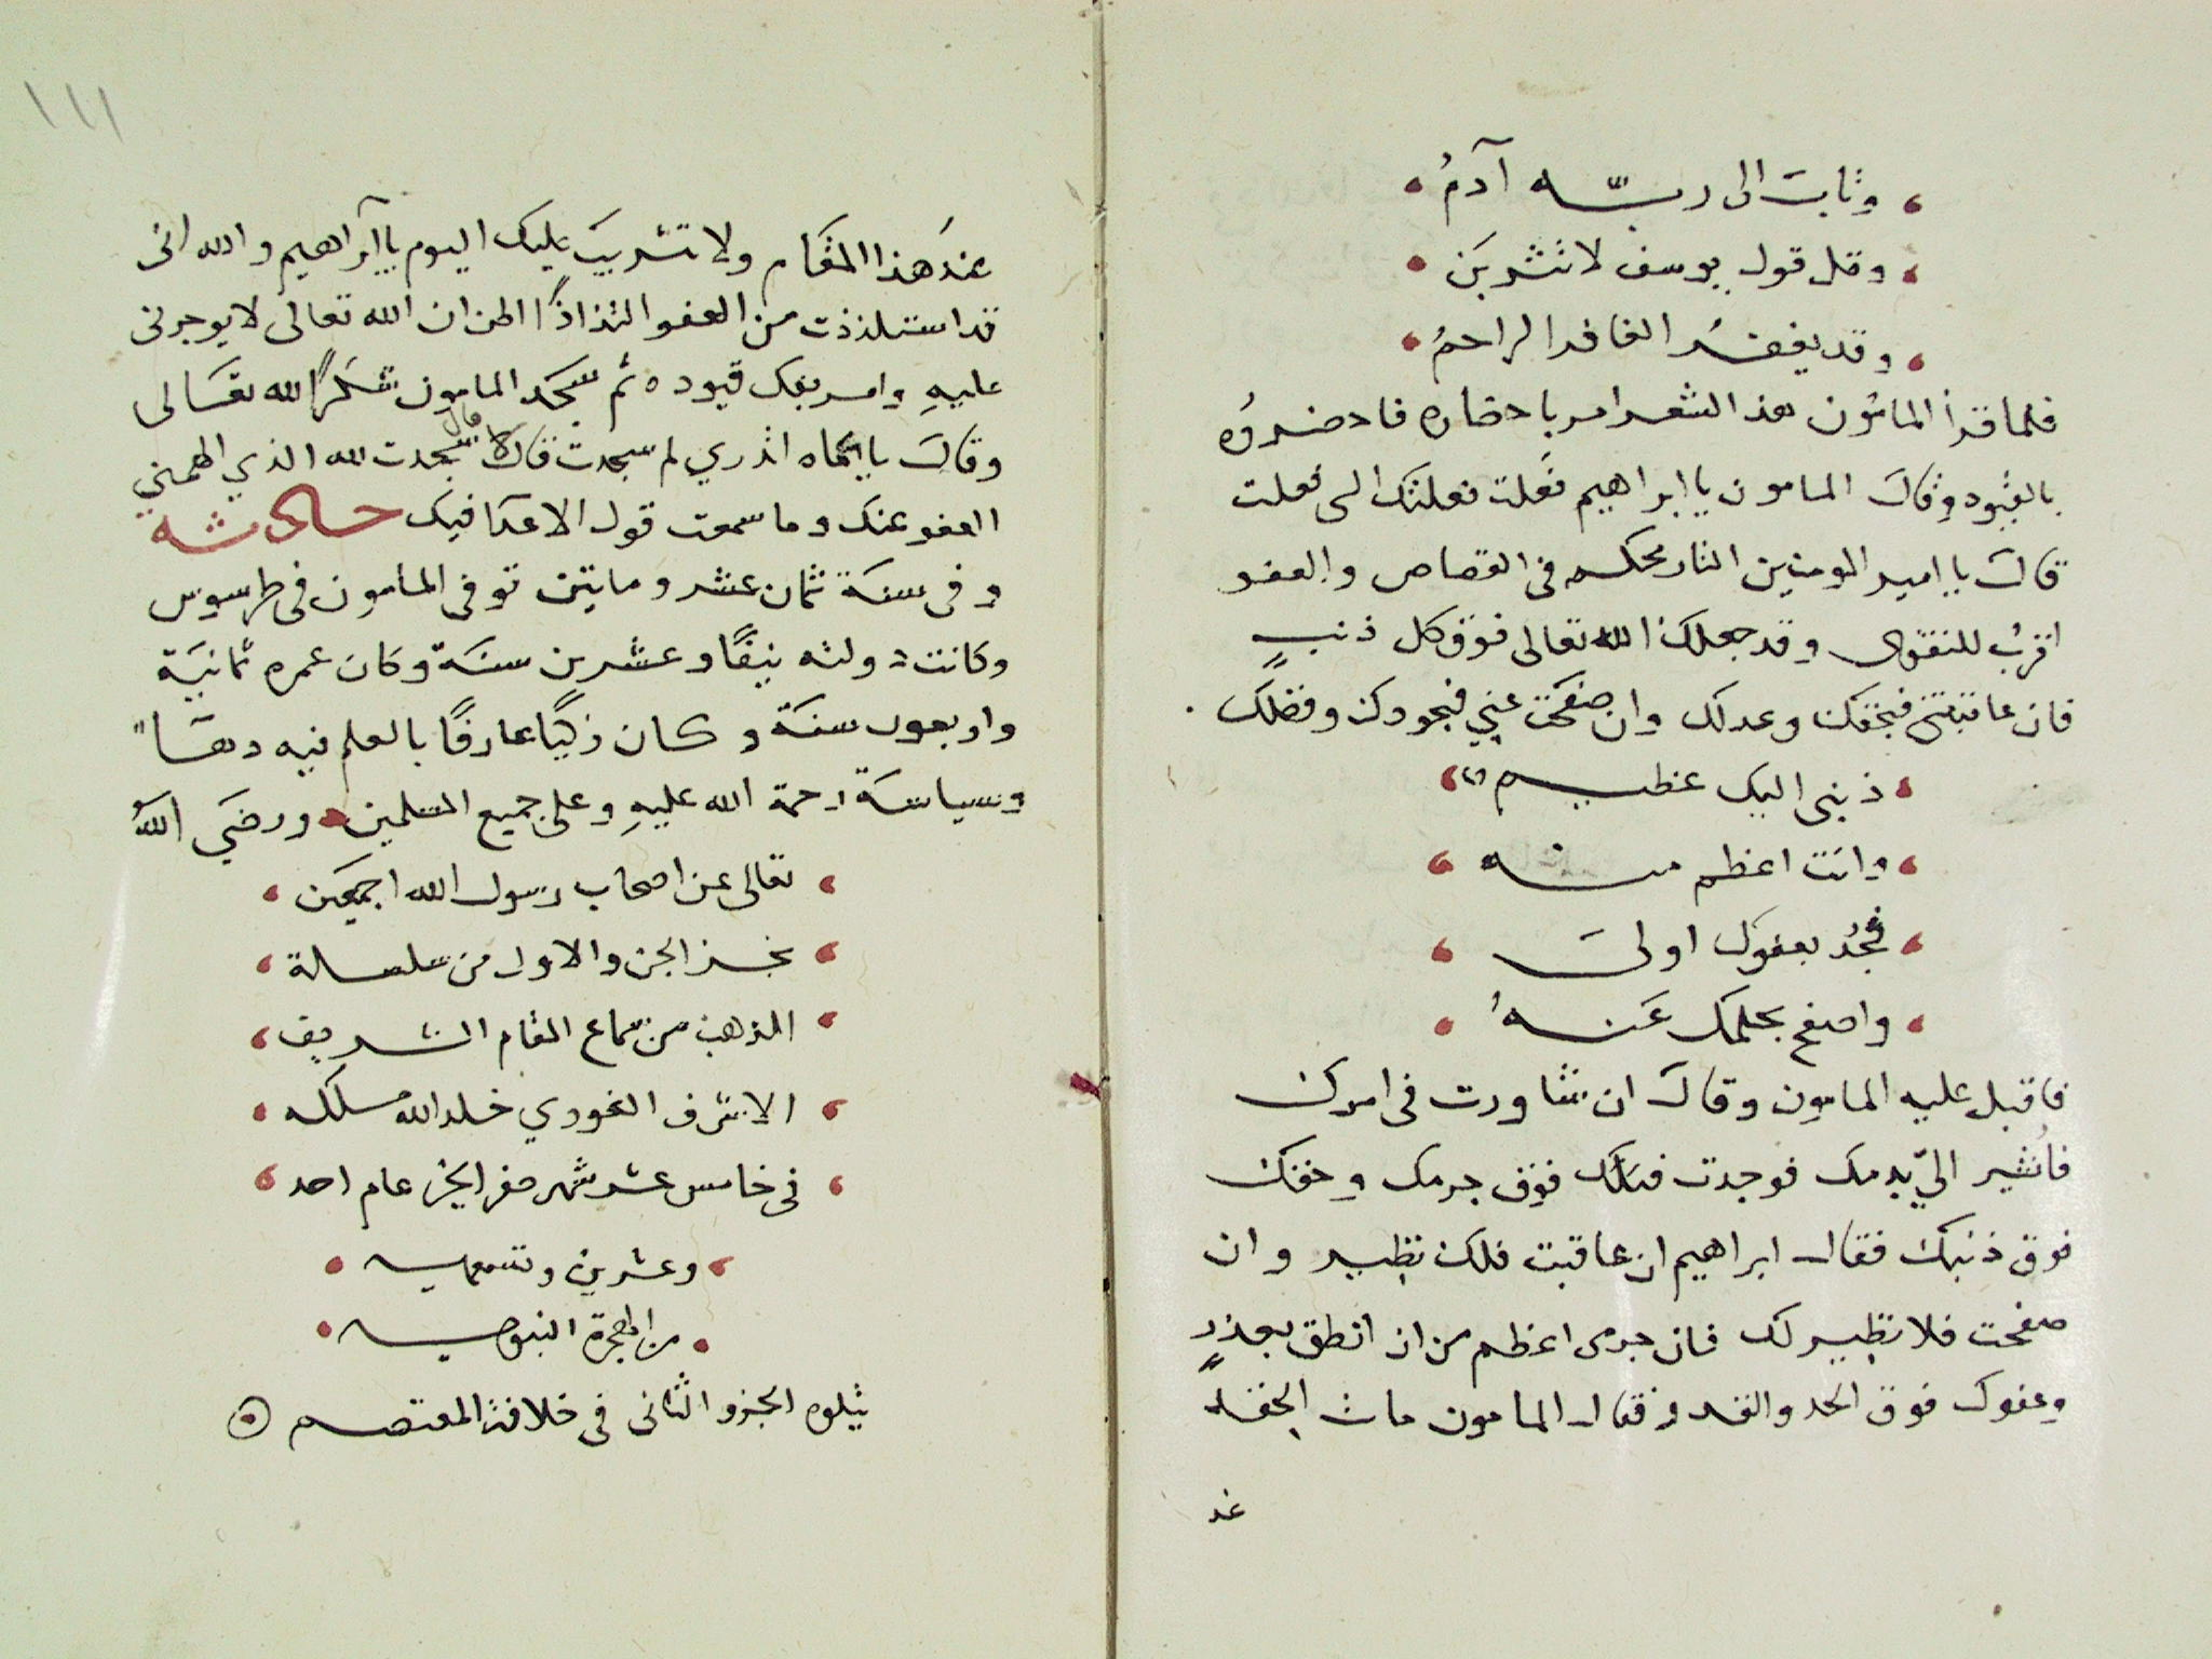 وتابت الى ربّه آدمُ
وقل قول يوسف لا تثريبَ
وقد يغفرُ الغافر الراحمُ
فلما قرأ المامُون هذ الشعر امر باحضاره فاحضروُه
بالقيُود وقالَ المامون يا ابراهيم فَعلت فعلتك التى فعلت
قالَ يا امير المومنين الثار محكم فى القصاص والعفو
اقربُ للتقوى وقد جعلك الله تعالى فوق كل ذنبٍ
فان عاقبتنى فبحقك وعدلك وان صفحت عني فبجودك وفضلك
ذنبى اليك عظيم
وانت اعظم منه
فجُد بعفوك اولىَ
واصفح بحلمك عَنهُ
فاقبل عليه المامون وقالَ ان شاورت فى امرك
فاُشير اليّ بدمك فوجدت قدرك فوق جرمك وحقك
فوق ذنبك فقال ابراهيم ان عاقبت فلك نظير وان
صفحت فلا نظير لك فان جرمى اعظم من ان انطق بعذرٍ
وعفوك فوق الحد والقدر فقال المامون مات الحقد
عند
١١١
عندَ هذا المقام ولا تثريبَ عليك اليوم يا ابراهيم والله انى
قد استلذذت من العفو التذاذًا اظن ان الله تعالى لا يوجرنى
عليهِ وامر بفك قيوده ثم سجَد المامون شكرًا لله تعَالى
وقالَ يا عمَّاه اتدري لم سجدت قال لا قال سجدت لله الذي الهمني
العفو عنك وما سمعت قول الاعدا فيك حادثه
وفى سنَة ثمان عشر ومايتين توفى المامون فى طرسوس
وكانت دولته نيفًا وعشرين سنَة وكان عمره ثمانيَة
واربعون سنَة وكان ذكيًا عارفًا بالعلم فيه دهَا"
وسياسَة رحمة الله عليهِ وعلى جميع المسلمين ورضَي اللهُ
تعالى عن اصحاب رسول الله اجمعَين
نجز الجزو الاول من سلسلة
الذهب من سماع المقام الشريف
الاشرف الغوري خلد اللهُ ملكه
فى خامس عشر شهر صفر الخير عام احد
وعشرين وتسعمايه
من الهجرة النبويه
يتلوه الجزو الثانى فى خلافة المعتصم